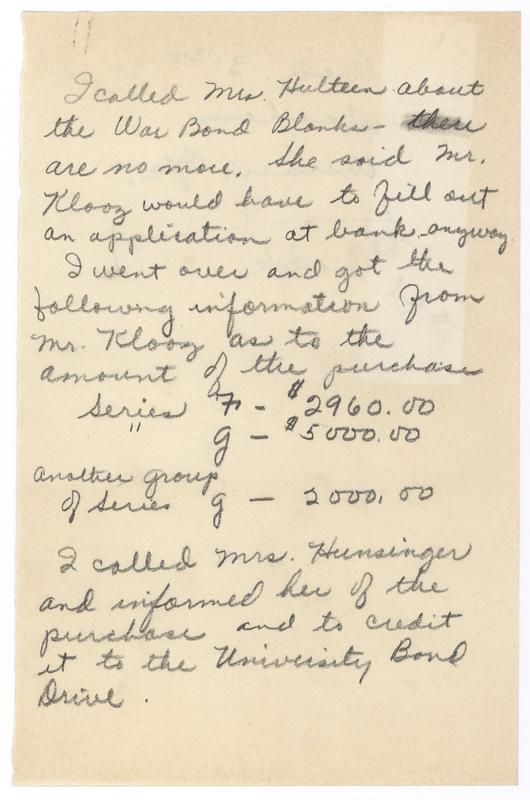 I called Mrs. Hulteen about
the War Bond Blanks - there
are no more. She said Mr.
Klooz would have to fill out
an application at bank anyway.
I went over and got the
following information from
Mr. Klooz as to the
amount of the purchase
Series F - $2960.00
" G - $5000.00
another group
of Series G - 2000.00
I called Mrs. Hunsinger
and informed her of the
purchase and to credit
it to the University Bond
Drive.